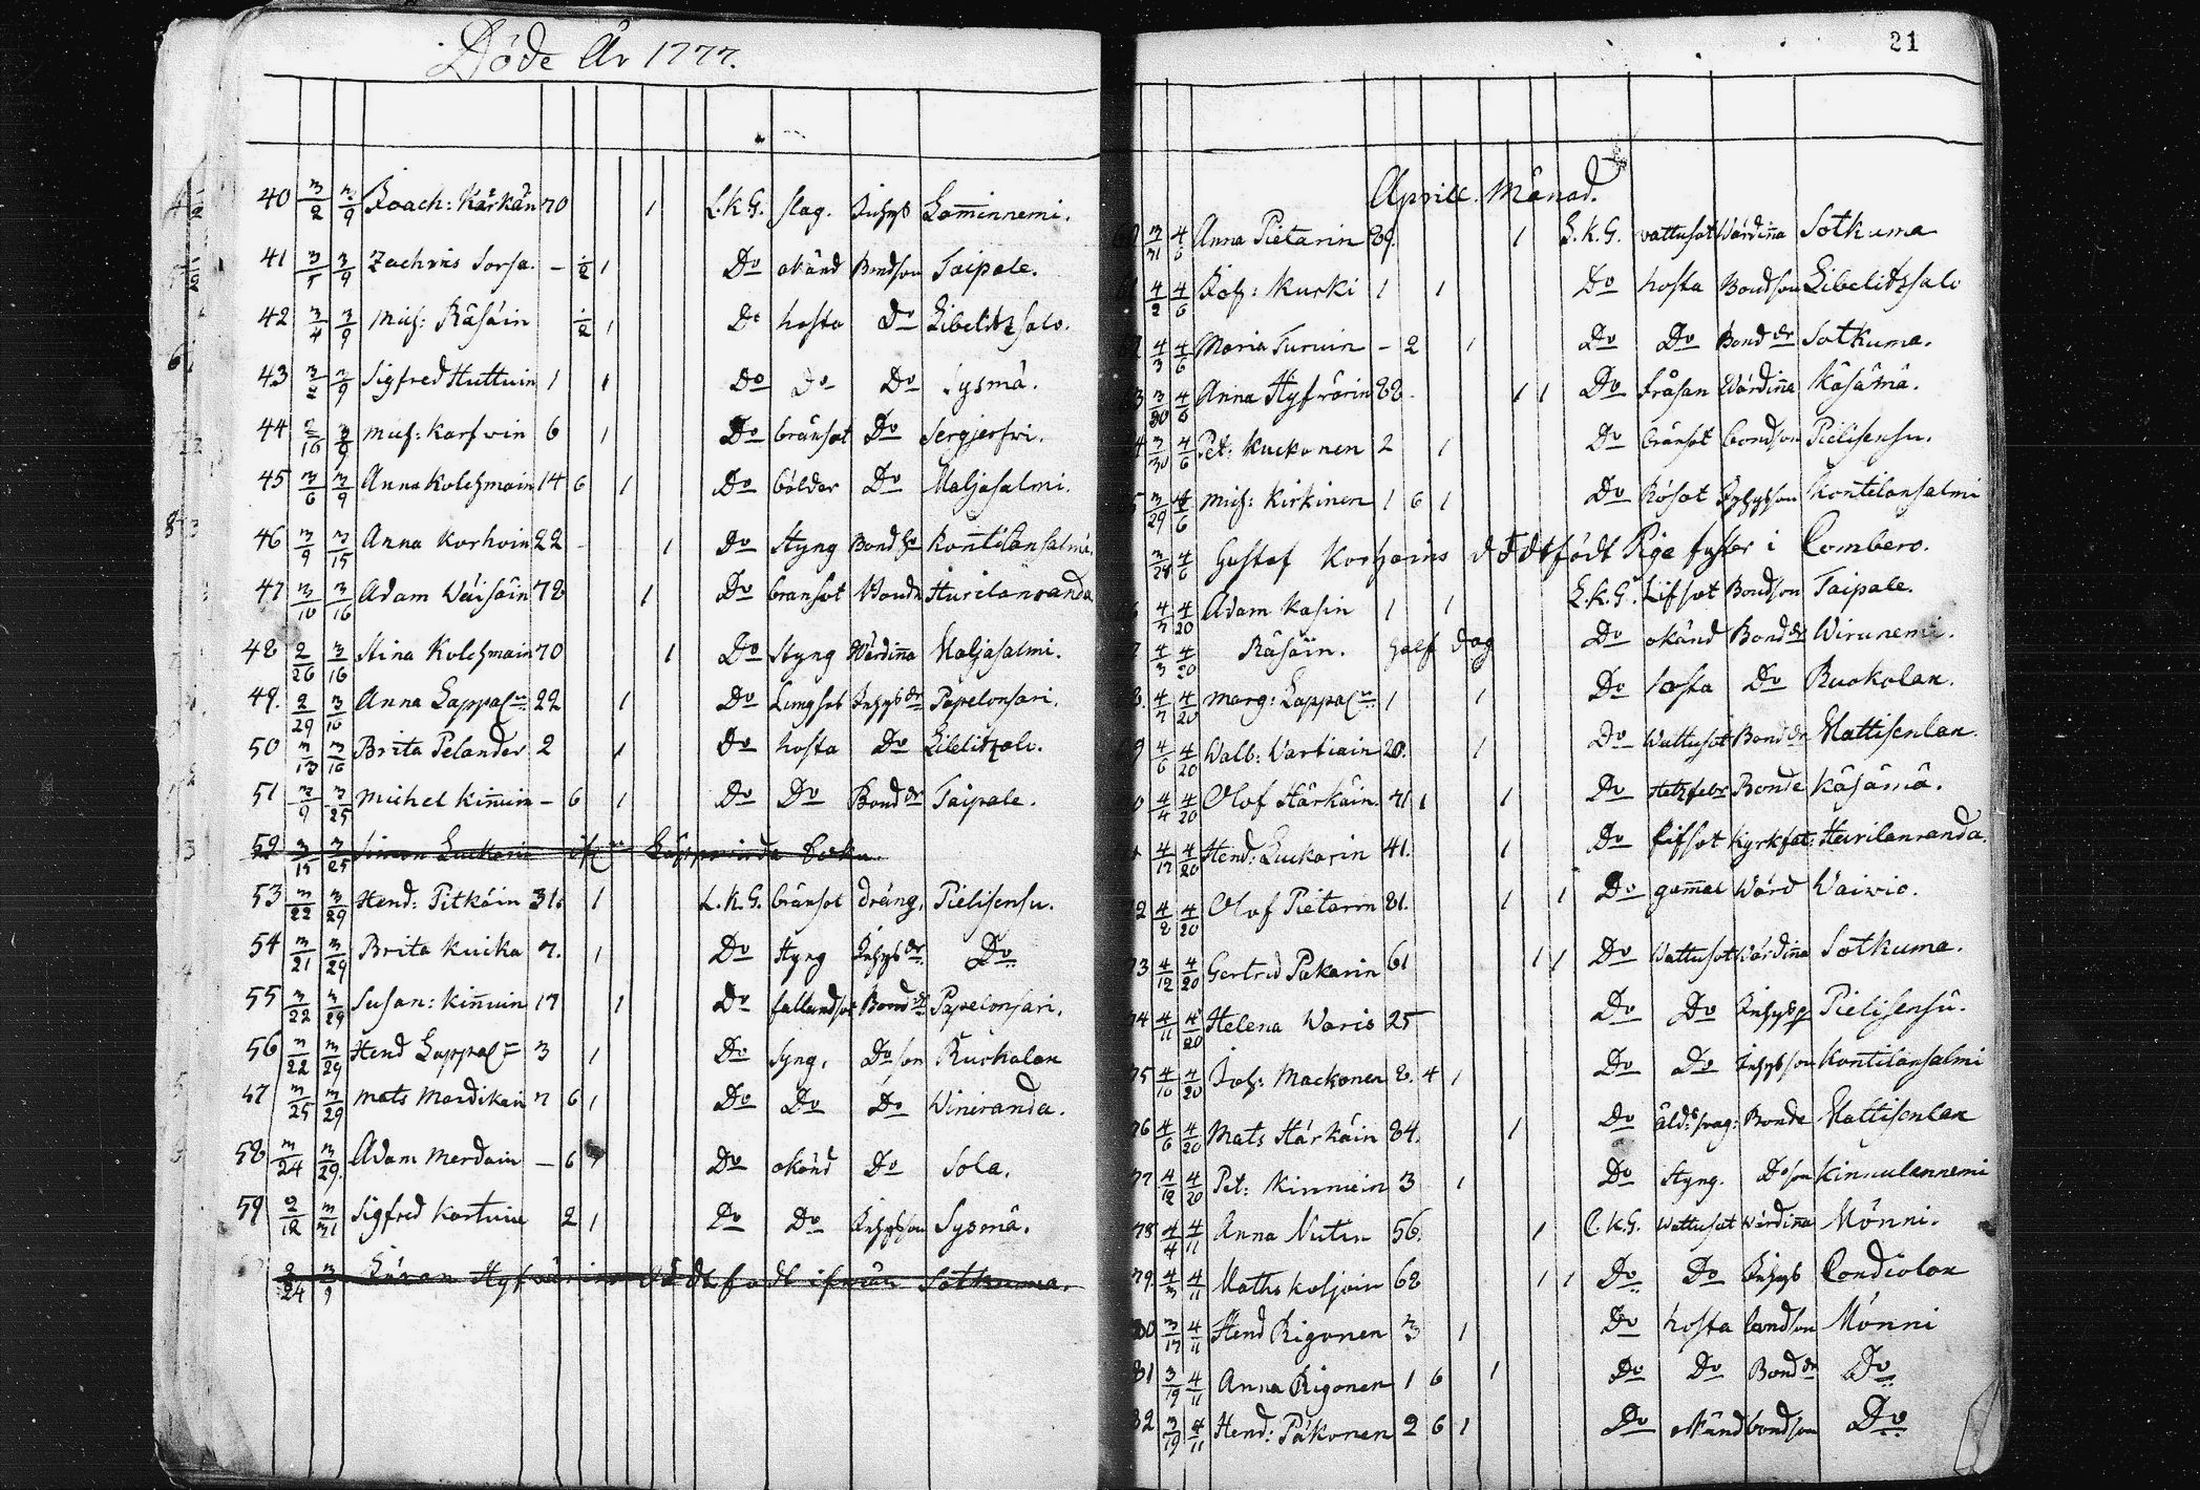 Döde År 1777.
40 3/2 3/9 Joach: Kärkän 70 1 L.K.G. slag. Inhys
41 3/5 3/9 Zachris Sorsa. - 1/2 1 Do okänd Bondson Taipale.
42 3/4 3/9 Mich: Räsäin 1/2 1 Do hosta Do Libelitzsalo.
43 3/2 3/9 Sigfred Huttuin 1 1 Do Do Do Sysmä.
44 2/16 3/9 Mich: Karfwin 6 1 Do bränsot Do
45 3/6 3/9 Anna Kolehmain 14 6 1 Do bölder Do Maljasalmi.
46 3/9 3/15 Anna Korhoin 22 - 1 Do Styng Bond Kontilansalmi.
47 3/10 3/16 Adam Wäisäin 78 1 Do bransot Bonde Hurilanranda
48 2/26 3/16 Stina Kolehmain 70 1 Do Styng Wärdiña Maljasalmi.
49. 2/29 3/16 Anna Lappal: 22 1 Do Lungsot Inhysdr Papelonsari.
50 3/13 3/16 Brita Pelander 2 1 Do hosta Do Libelitzalo.
51 3/9 3/25 Michel Kiñuin - 6 1 Do Do Bonddr Taipale.
52 3/15 3/25 Simon
53 3/22 3/29 Hend: Pitkäin 31. 1 L.K.G. bränsot dräng, Pielisensu.
54 3/21 3/29 Brita Kuika 7. 1 Do Styng Inhysdr Do
55 3/22 3/29 Susan: Kiñuin 17 1 Do fallandsot Bonddr Papelonsari.
56 3/22 3/29 Hend Lappal: 3 1 Do Syng, Do son Ruokolan
57 3/25 3/29 Mats Mardikain 7 6 1 Do Do Do Winiranda.
58 3/24 3/29. Adam Merdain - 6 Do okänd Do Sola.
59 2/12 3/31 Sigfred Kortuin 2 1 Do Do Inhysson Sysmä.
2/24 3/9 Göran Hyfwärins dödtfödt ifrån Sotkuma.
21
Aprill. Månad.
3/31 4/6 Anna Pietarin 89. 1 L.K.G. vattusot Wärdiña Sotkuma
4/2 4/6 Joh: Kurki 1 1 Do hosta Bondson Libelitzsalo
4/3 4/6 Maria Turuin - 2 1 Do Do Bonddr Sotkuma.
3 3/30 4/6 Anna Hyfvärin 88. 1 1 Do fråsan Wärdiña Käsämä.
4 3/30 4/6 Pet: Kuckonen 2 1 Do bränsot bondson Pielisensu.
5 3/29 4/6 Mich: Kirkinen 1 6 1 Do Rösot Inhysson Kontilansalmi
3/28 4/6 Gustaf Korhoins dödtfödt Pige i Lombero.
4/7 4/20 Adam Kasin 1 1 L.K.G. Lifsot Bondson Taipale.
7 4/3 4/20 Räsäin. half dag Do okänd Bonddr Wirunemi.
8. 4/7 4/20 Marg: Lappal: 1 1 Do hosta Do Ruokolan.
9 4/6 4/20 Walb: Vartiain 20. 1 Do Wattusot Bonddr Mattisenlax.
0 4/4 4/20 Olof Härkäin. 71 1 1 Do Hetzfebr Bonde Käsämä.
4/17 4/20 Hend: Luckarin 41. 1 Do lifsot Kyrkfat: Heirilanranda.
2 4/8 4/20 Olof Pietarin 81. 1 1 Do gam̃al Wärd Waivio.
73 4/12 4/20 Gertrud Pakarin 61 1 1 Do Wattusot Wärdiña Sotkuma.
74 4/11 4/20 Helena Waris 25 Do Do Pielisensu.
75 4/10 4/20 Joh: Mackonen 8. 4 1 Do Do Inhysson Kontilansalmi
76 4/6 4/20 Mats Härkäin 84. 1 Do Bonde Mattisenlax
77 4/12 4/20 Pet: Kinnuin 3 1 Do Styng. Do son Kinnulannemi
78 4/4 4/11 Anna Nutin 56. 1 L.K.G. Wattusot Wärdiña Mönni.
79. 4/3 4/11 Maths Koljoin 68 1 1 Do Do Inhys Condiolax
80 3/17 4/11 Hend Rigonen 3 1 Do hosta bondson Mönni
81 3/19 4/11 Anna Rigonen 1 6 1 Do Do Bonddr Do
82 3/19 4/11 Hend: Päkonen 2 6 1 Do okänd bondson Do